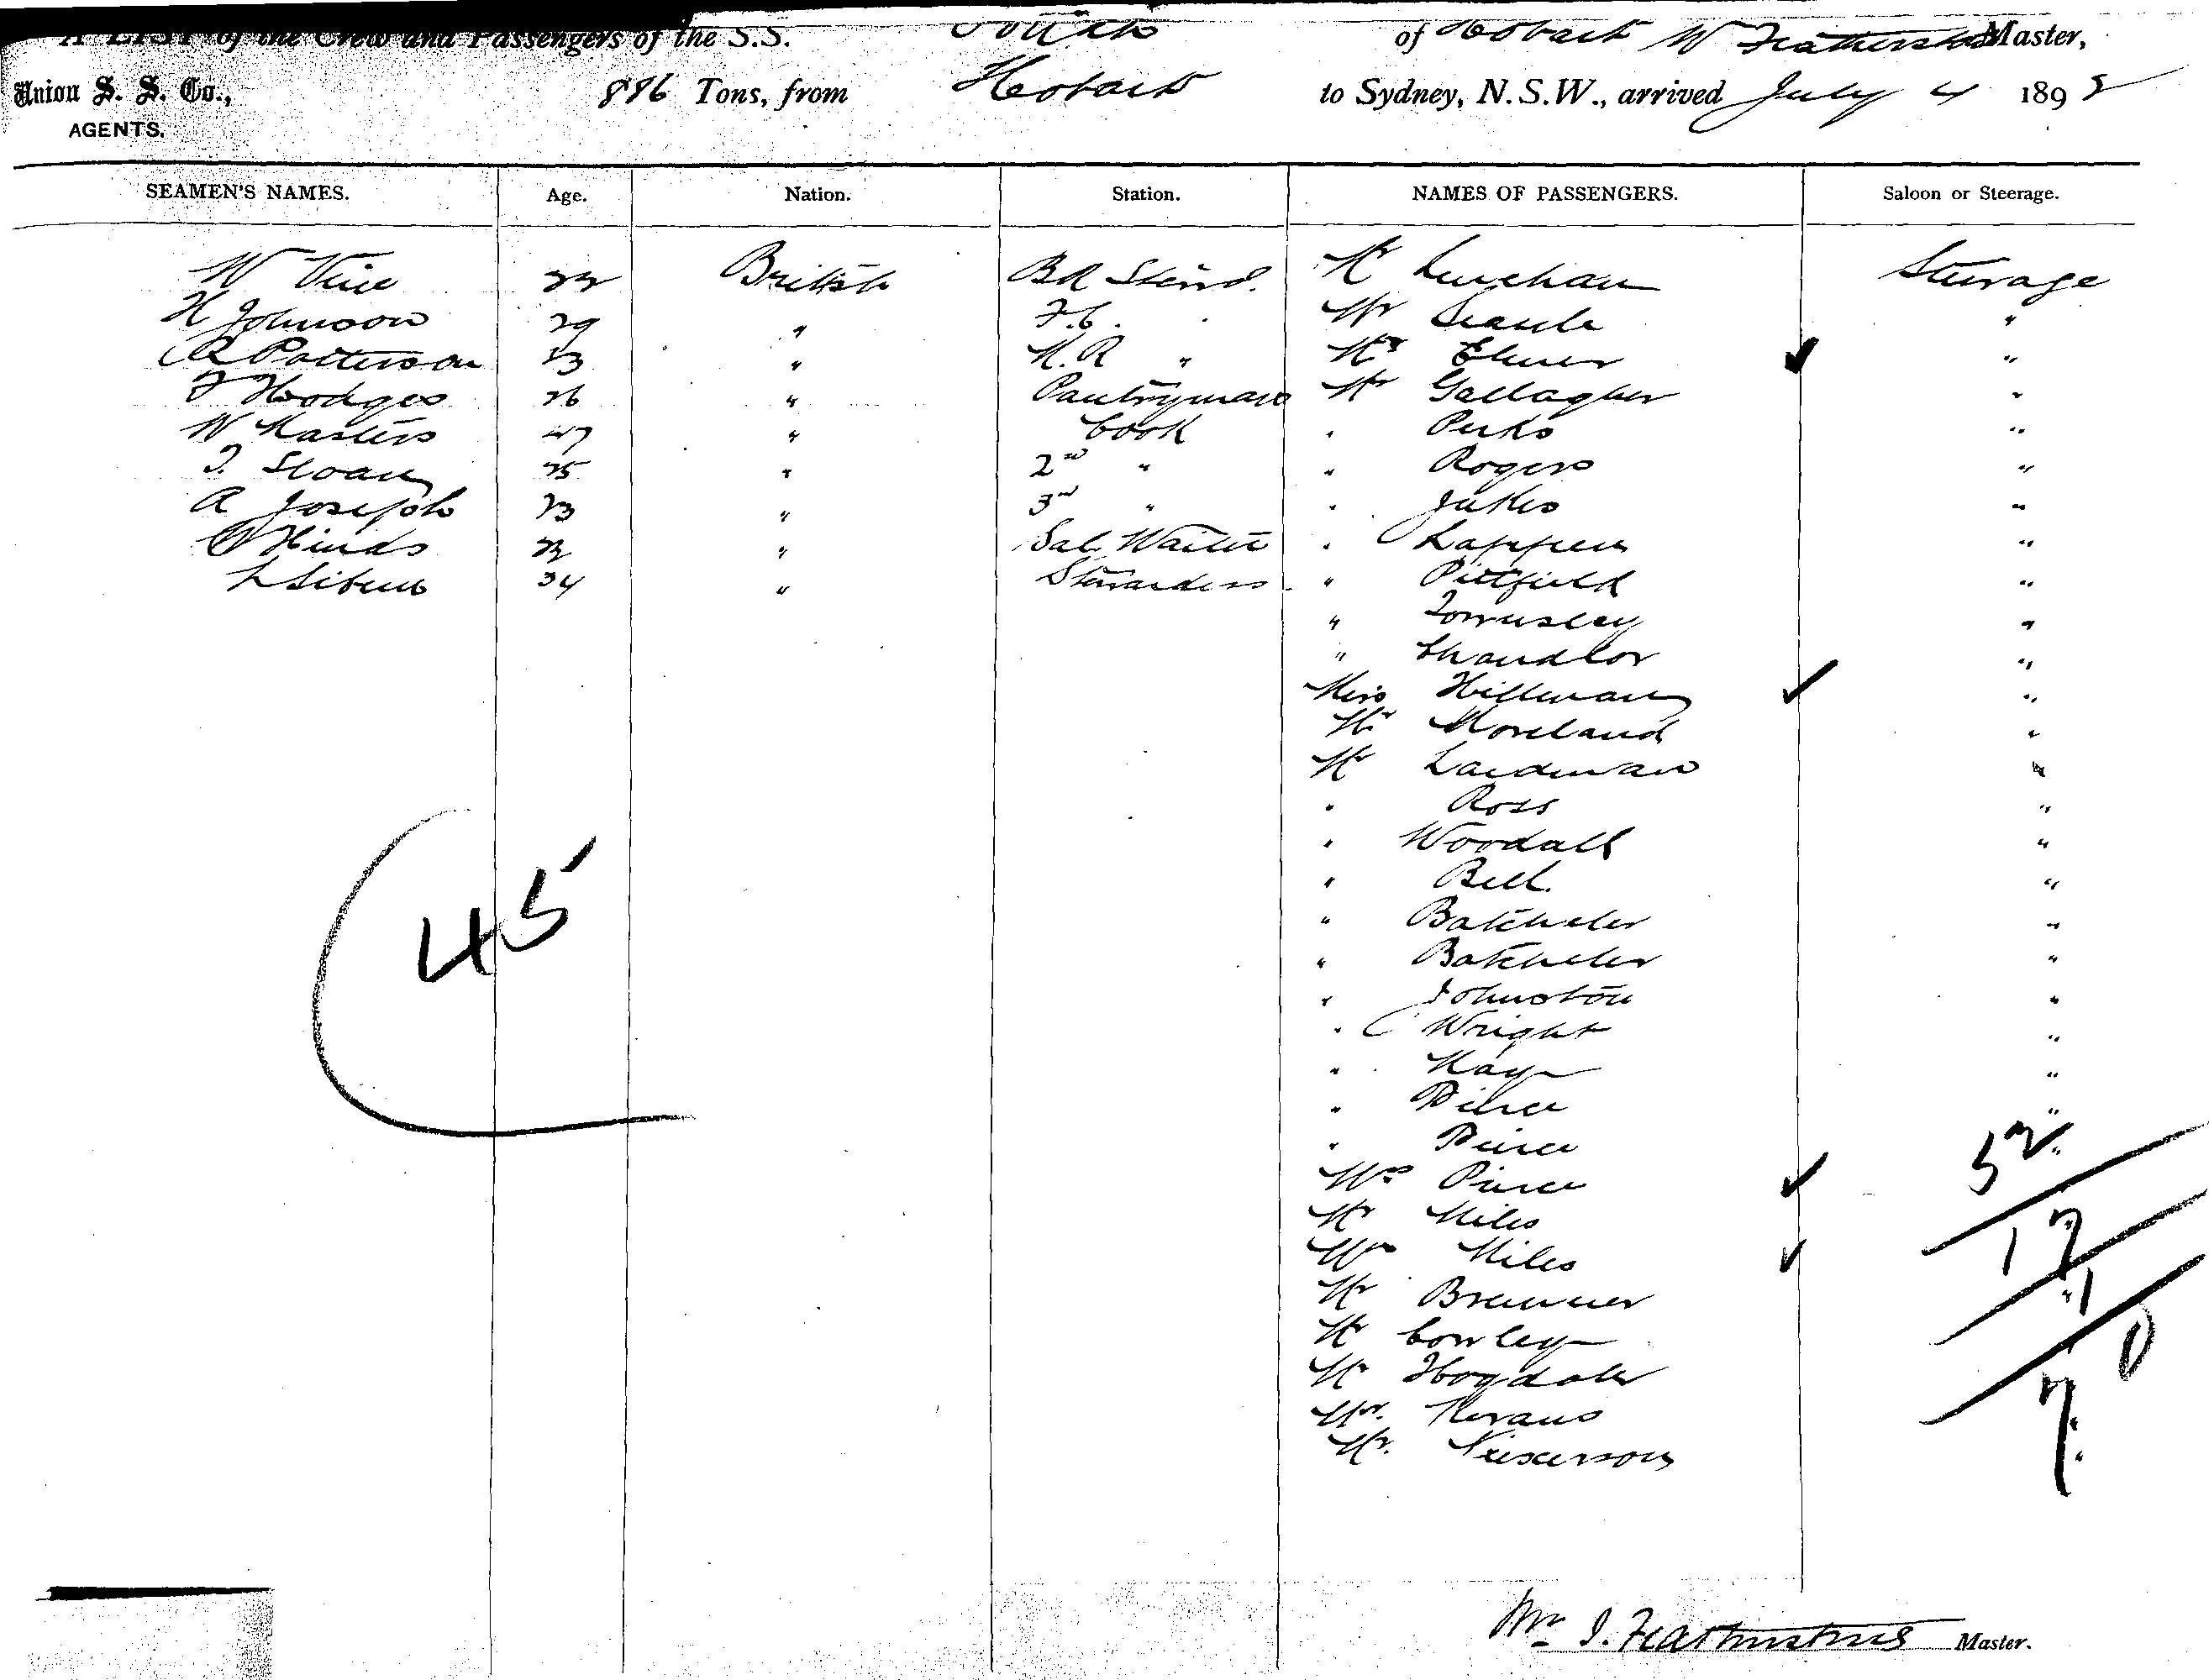 A LIST of the Crew and Passengers of the S.S. of Hobart W Featherstone Master,
Union S. S. Co., 886 Tons, from Hobart to Sydney, N.S.W., arrived July 4 1892
AGENTS.
SEAMEN'S NAMES. Age. Nation. Station. NAMES OF PASSENGERS. Saloon or Steerage.
W Vice 22 British BR Stewd. Mr Steerage
H Johnson 29 " F.C. . Mr Searle "
R Patterson 23 " M.R " Mrs Elmer ✓ "
F Hodges 26 " Pantryman Mr Gallagher "
W Masters 47 " Cook " Perks "
J. Sloan 25 " 2nd " " Rogers "
A Joseph 23 " 3rd " " Jukes "
Hinds 22 " Sal Waiter " Lappen "
34 " Stewardess " Pittfield "
" Townsley "
" Chandlor "
Miss Hillman ✓ "
Mr Moreland "
Mr Lardeman "
" Ross "
" Woodall "
" Bell. "
" Batcheler "
" Batcheler "
" Johnston "
" Wright "
" Kay "
" Pierce "
" Pierce
Mrs Pierce ✓
Mr Miles
Mrs Miles ✓
Mr Brunner
Mr Cowley
Mr
Mr. Kevans
Mr.
45
52
12
1
0
7.
Wm J. Featherstone Master.